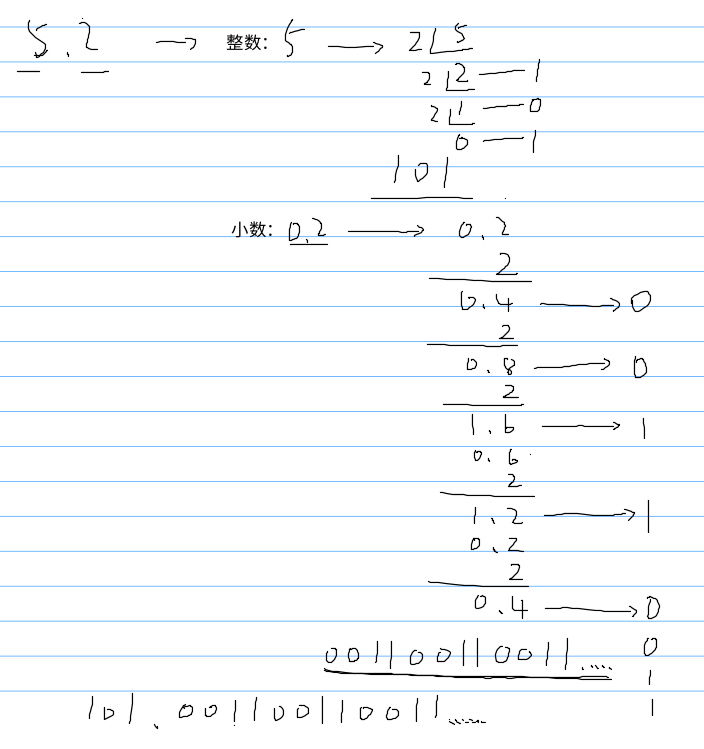 5.2 → 整数: 5 → 2 5
2 2 — 1
2 1 — 0
0 — 1
101
小数: 0.2 → 0.2
2
0.4 → 0
2
0.8 → 0
2
1.6 → 1
0.6
2
1.2 → 1
0.2
2
0.4 → 0
001100110011..... 0
1
101.001100110011...... 1